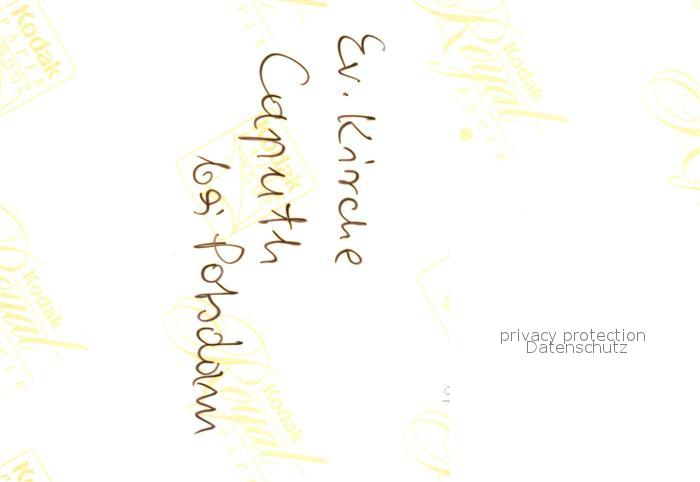 Ev. Kirche
Caputh
bei Potsdam
privacy protection
Datenschutz
Kodak
Royal
PAPER